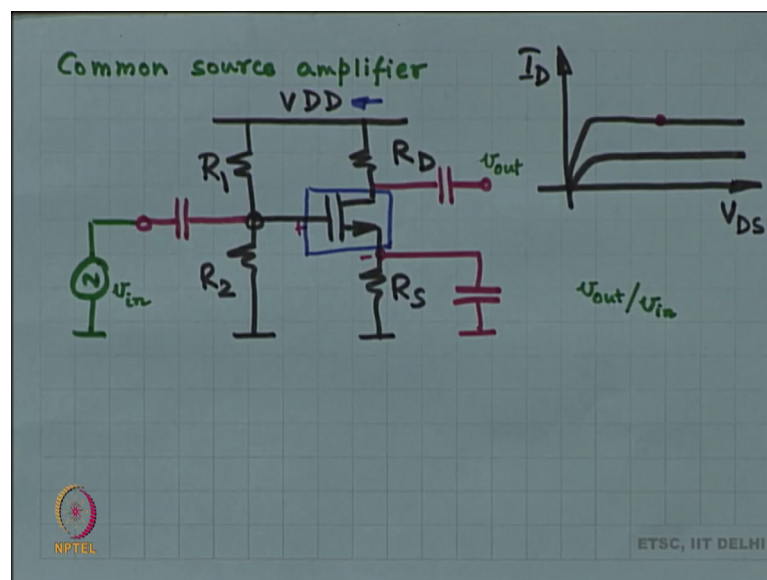 Common source amplifier
VDD
I_D
R_1
R_D
v_out
V_DS
v_in
R_2
R_S
v_out/v_in
+
-
NPTEL
ETSC, IIT DELHI